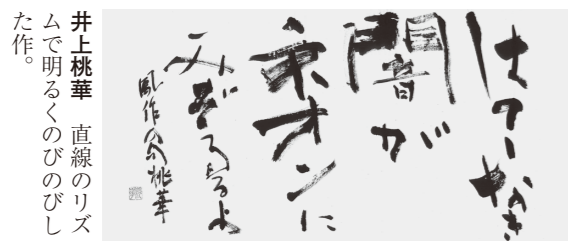 はてしなき
闇が
ネオンに
みぞるるよ
鳳作の句 桃華
井上桃華　直線のリズ
ムで明るくのびのびし
た作。